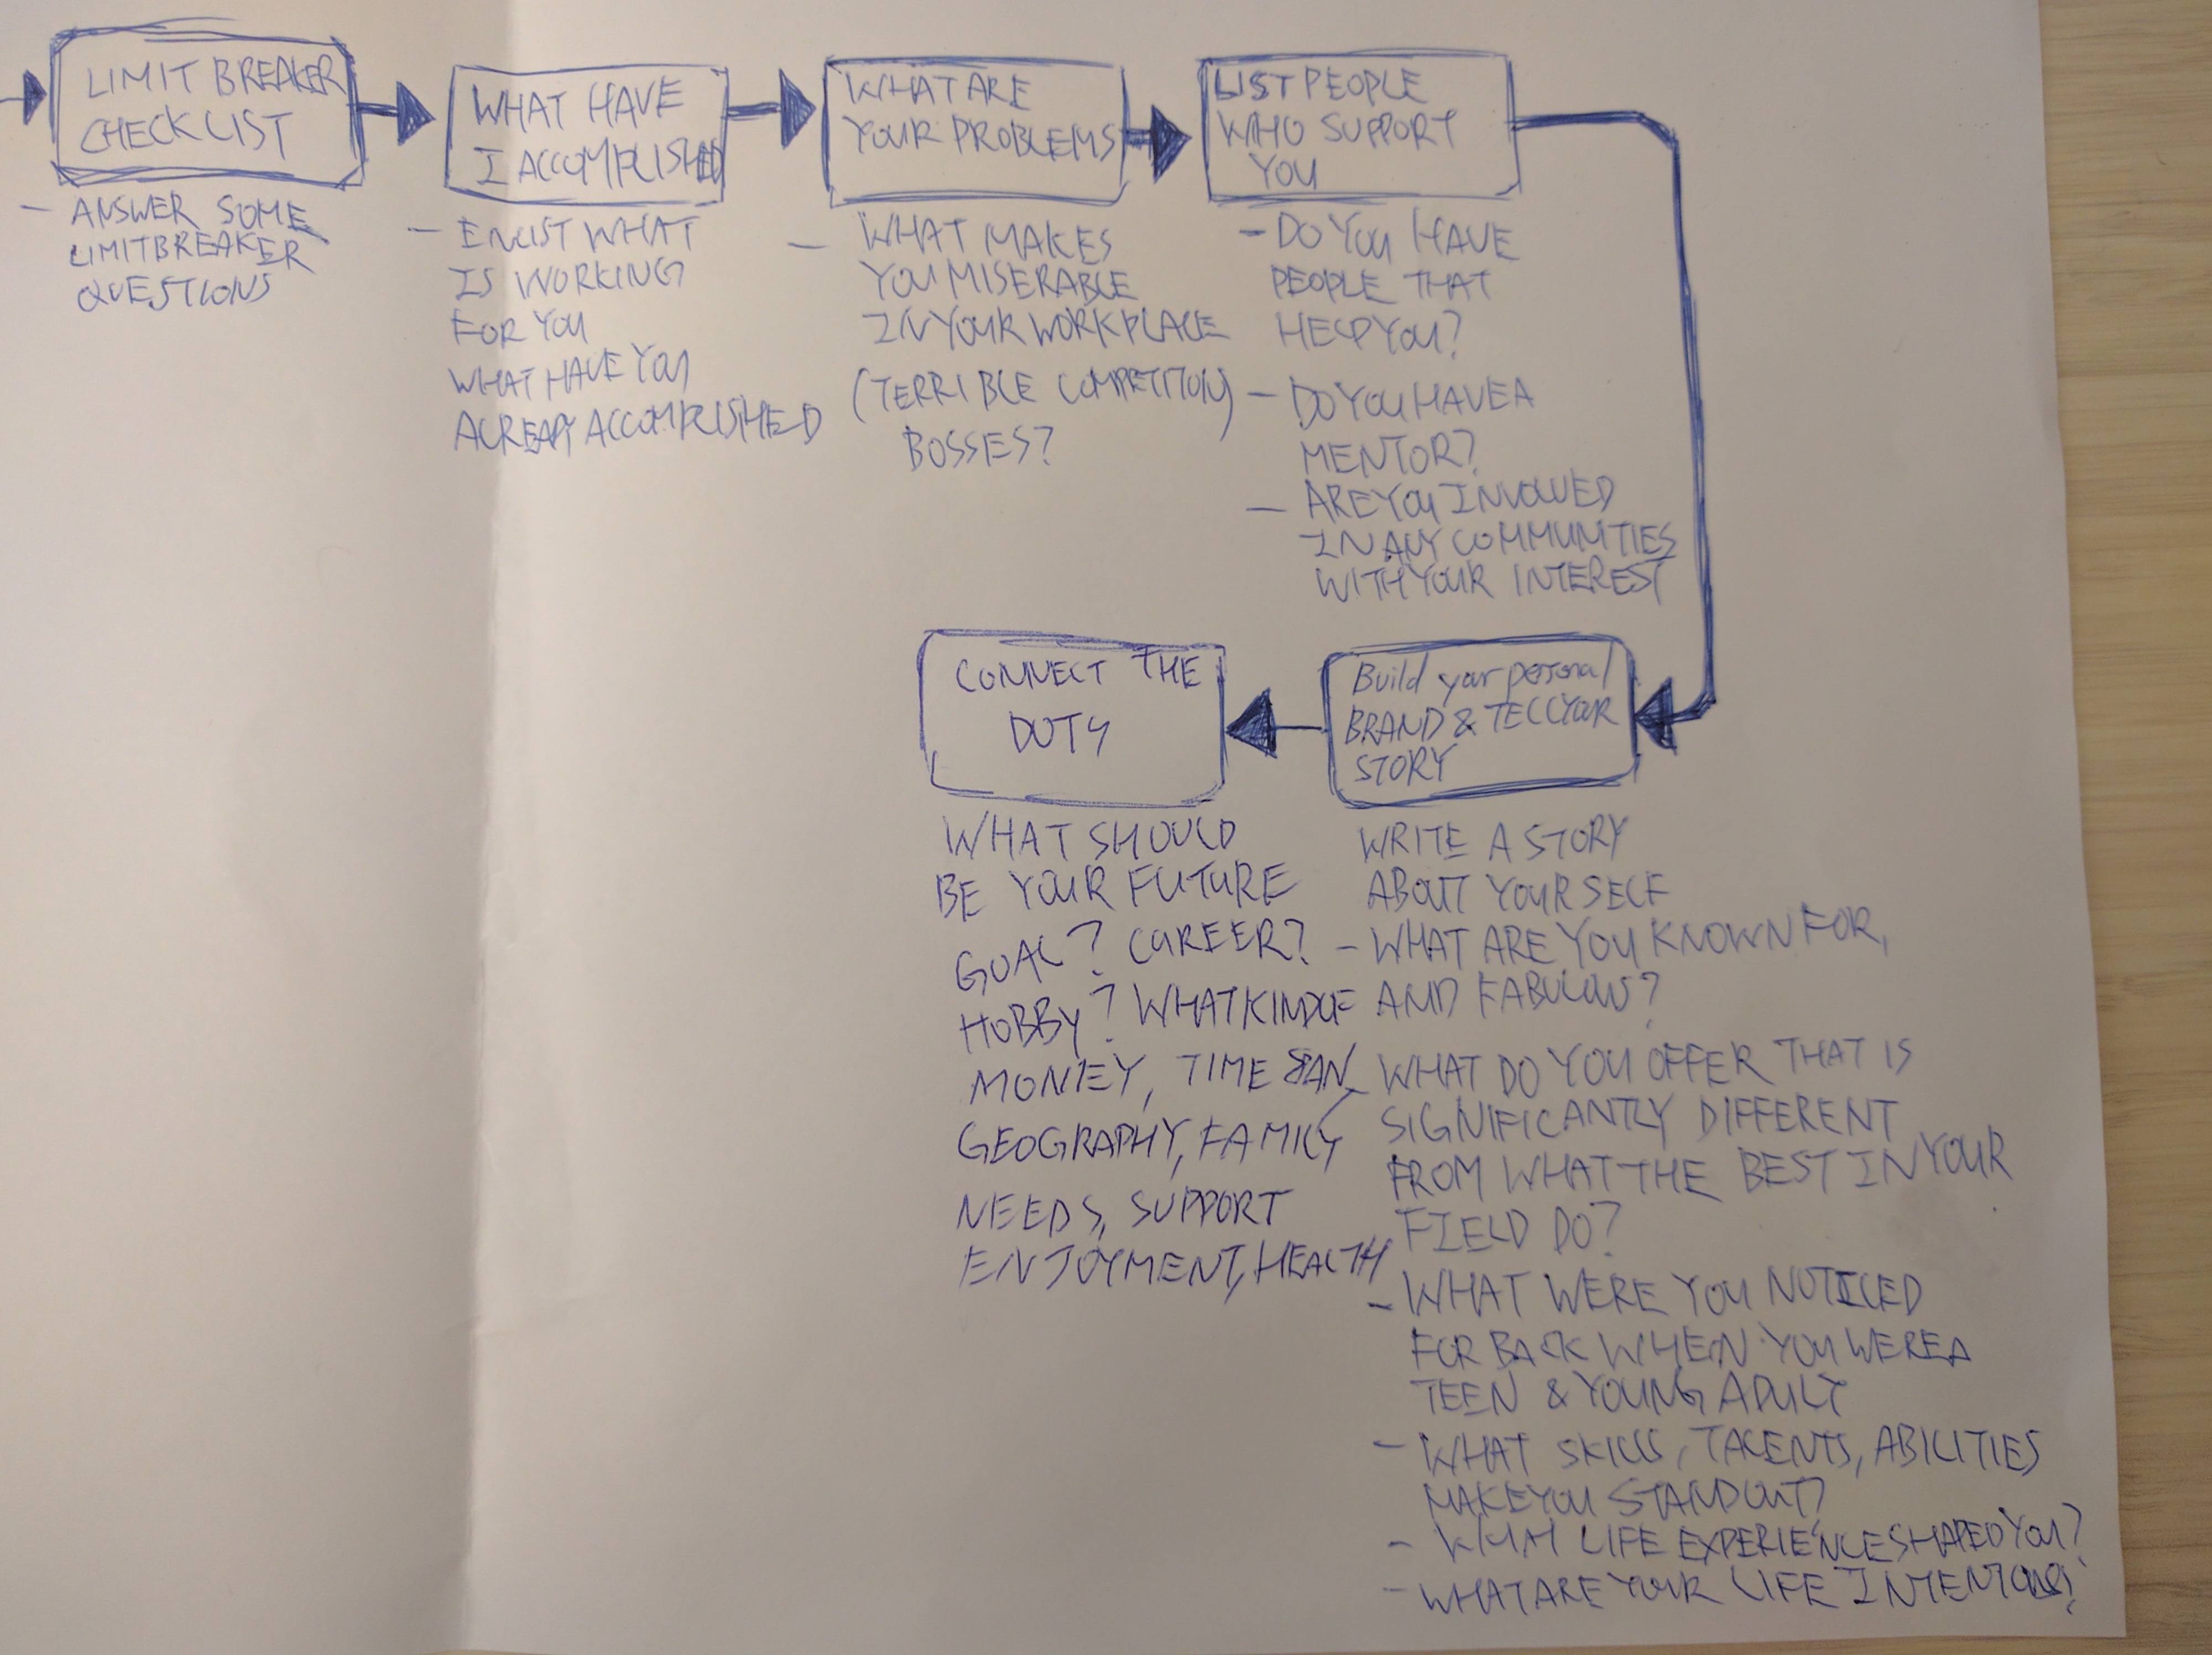 LIMIT BREAKER
CHECKLIST
- ANSWER SOME
LIMITBREAKER
QUESTIONS
WHAT HAVE
I ACCOMPLISHED
- ENLIST WHAT
IS WORKING
FOR YOU
WHAT HAVE YOU
ALREADY ACCOMPLISHED
WHAT ARE
YOUR PROBLEMS
- WHAT MAKES
YOU MISERABLE
IN YOUR WORKPLACE
(TERRIBLE COMPETITION)
BOSSES?
LIST PEOPLE
WHO SUPPORT
YOU
- DO YOU HAVE
PEOPLE THAT
HELP YOU?
- DO YOU HAVE A
MENTOR?
- ARE YOU INVOLVED
IN ANY COMMUNITIES
WITH YOUR INTEREST
Build your personal
BRAND & TELL YOUR
STORY
WRITE A STORY
ABOUT YOURSELF
- WHAT ARE YOU KNOWN FOR,
AND FABULOUS?
- WHAT DO YOU OFFER THAT IS
SIGNIFICANTLY DIFFERENT
FROM WHAT THE BEST IN YOUR
FIELD DO?
- WHAT WERE YOU NOTICED
FOR BACK WHEN YOU WERE A
TEEN & YOUNG ADULT
- WHAT SKILLS, TALENTS, ABILITIES
MAKE YOU STAND OUT?
- LIFE EXPERIENCE SHAPED YOU?
- WHAT ARE YOUR LIFE INTENTIONS?
CONNECT THE
DOTS
WHAT SHOULD
BE YOUR FUTURE
GOAL? CAREER?
HOBBY? WHAT KIND OF
MONEY, TIME SPAN
GEOGRAPHY, FAMILY
NEEDS, SUPPORT
ENJOYMENT, HEALTH